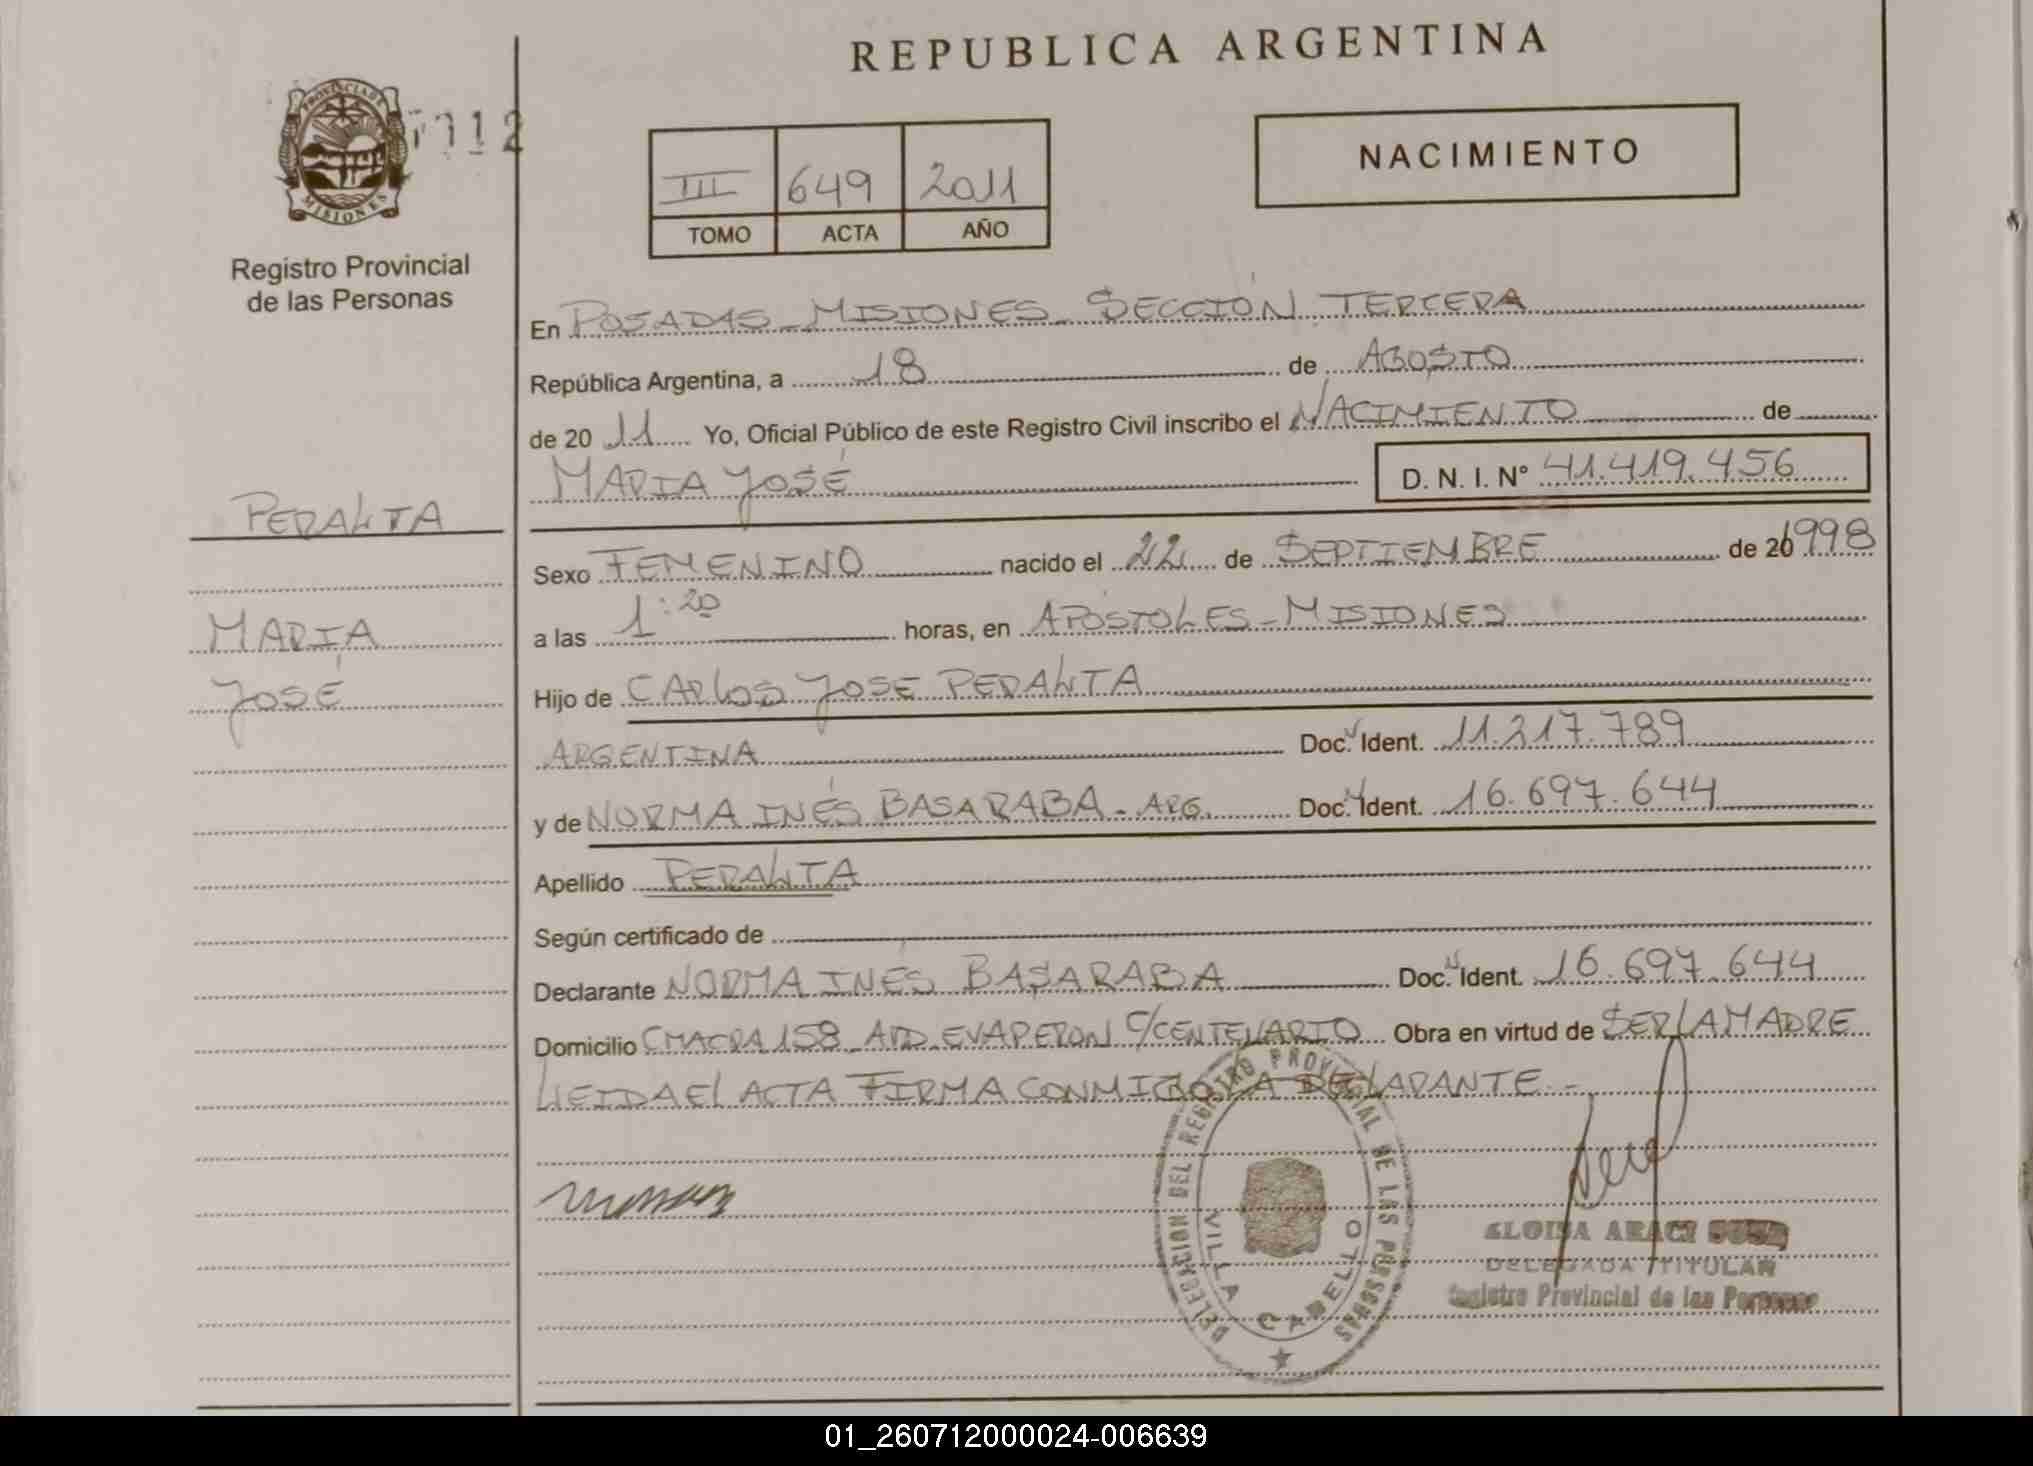 REPUBLICA ARGENTINA
PROVINCIA DE
MISIONES
112
Registro Provincial
de las Personas
III 649 2011
TOMO ACTA AÑO
NACIMIENTO
En POSADAS - MISIONES - SECCIÓN TERCERA
República Argentina, a 18 de AGOSTO
de 20 11 Yo, Oficial Público de este Registro Civil inscribo el NACIMIENTO de
MARIA JOSÉ D. N. I. Nº 41.419.456
PERALTA
MARIA
JOSÉ
Sexo FEMENINO nacido el 22 de SEPTIEMBRE de 20 1998
a las 1:20 horas, en APÓSTOLES - MISIONES
Hijo de CARLOS JOSE PERALTA
ARGENTINA Doc. Ident. 11.217.789
y de NORMA INÉS BASARABA - ARG. Doc. Ident. 16.697.644
Apellido PERALTA
Según certificado de
Declarante NORMA INÉS BASARABA Doc. Ident. 16.697.644
Domicilio CHACRA 158 - AVD. EVA PERON C/CENTENARIO Obra en virtud de SER LA MADRE
LEIDA EL ACTA FIRMA CONMIGO LA DECLARANTE -
DELEGACION DEL REGISTRO PROVINCIAL DE LAS PERSONAS
VILLA CABELLO
ARACI
DELEGADA TITULAR
Registro Provincial de las Personas
01_260712000024-006639